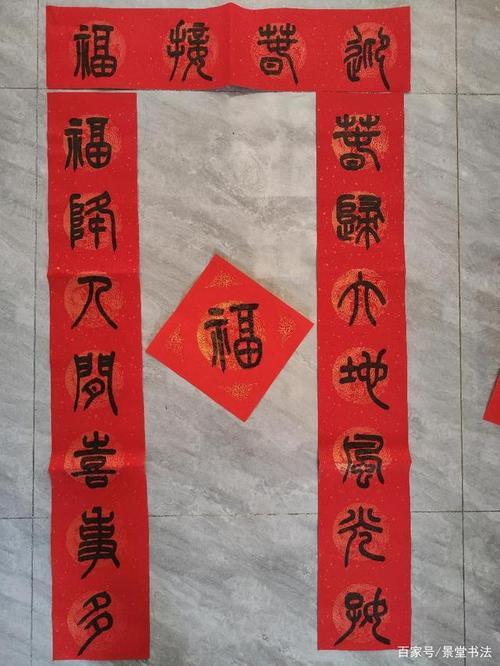 迎春接福
春歸大地風光好
福降人間喜事多
福
百家号/景堂书法